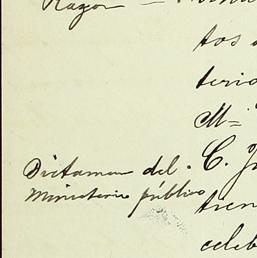 Razon
tos
terio
M=
Dictamen del
C.
Ministerio público
tren
celeb